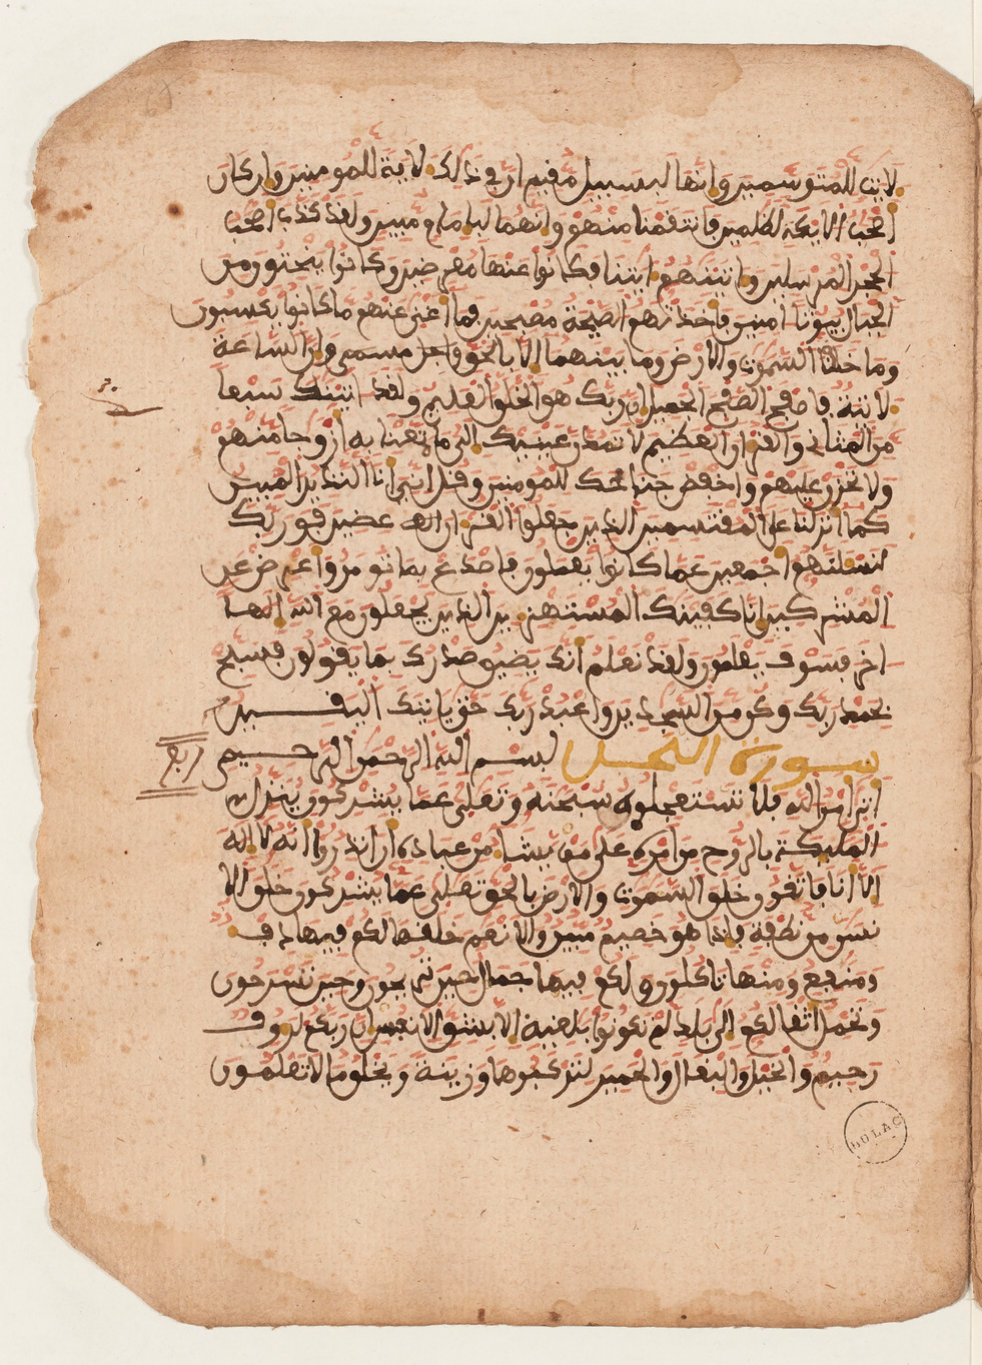 لايت للمتوسمين وانها لبسبيل مقيم ان في ذلك لاية للمومنين وان كان
اصحب الايكة لظلمين فانتقمنا منهم وانهما لبامام مبين ولقد كذب اصحب
الحجر المرسلين واتينهم ايتنا فكانوا عنها معرضين وكانوا ينحتون من
الجبال بيوتا امنين فاخذتهم الصيحة مصبحين فما اغنى عنهم ما كانوا يكسبون
وما خلقنا السموت والارض وما بينهما الا بالحق واجل مسمى وان الساعة
لاتية فاصفح الصفح الجميل ان ربك هو الخلق العليم ولقد اتينك سبعا
من المثاني والقران العظيم لا تمدن عينيك الى ما متعنا به ازوجا منهم
ولا تحزن عليهم واخفض جناحك للمومنين وقل اني انا النذير المبين
كما انزلنا على المقتسمين الذين جعلوا القران عضين فوربك
لنسلنهم اجمعين عما كانوا يعملون فاصدع بما تومر واعرض عن
المشركين انا كفينك المستهزين الذين يجعلون مع الله الها
اخر فسوف يعلمون ولقد نعلم انك يضيق صدرك بما يقولون فسبح
بحمد ربك وكن من السجدين واعبد ربك حتى ياتيك اليقين
سورة النحل بسم الله الرحمن الرحيم
ربع
اتى امر الله فلا تستعجلوه سبحنه وتعلى عما يشركون ينزل
المليكة بالروح من امره على من يشا من عباده ان انذروا انه لا اله
الا انا فاتقون خلق السموت والارض بالحق تعلى عما يشركون خلق الا
نسن من نطفة فاذا هو خصيم مبين والانعم خلقها لكم فيها دف
ومنفع ومنها تاكلون ولكم فيها جمال حين تريحون وحين تسرحون
وتحمل اثقالكم الى بلد لم تكونوا بلغيه الا بشق الانفس ان ربكم لروف
رحيم والخيل والبغال والحمير لتركبوها وزينة ويخلق ما لا تعلمون
BULAC